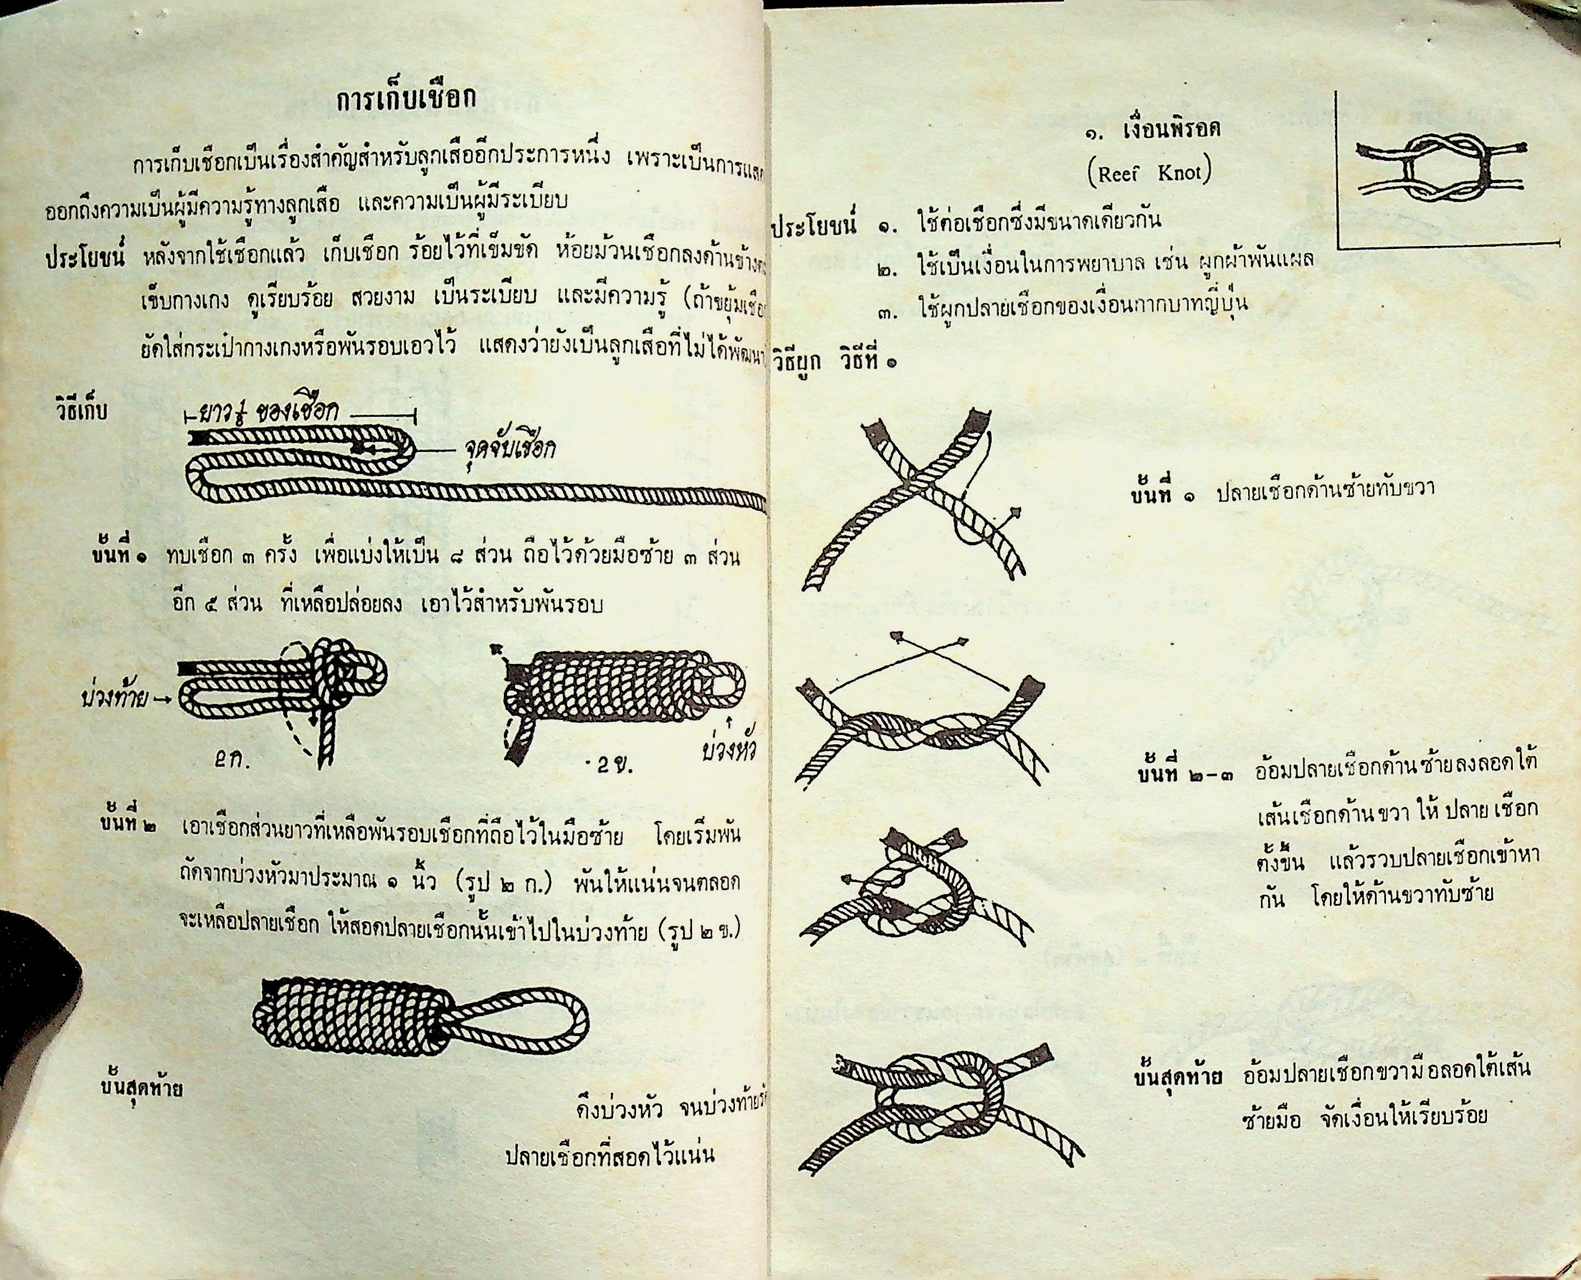 การเก็บเชือก
การเก็บเชือกเป็นเรื่องสำคัญสำหรับลูกเสืออีกประการหนึ่ง เพราะเป็นการแสด
ออกถึงความเป็นผู้มีความรู้ทางลูกเสือ และความเป็นผู้มีระเบียบ
ประโยชน์ หลังจากใช้เชือกแล้ว เก็บเชือก ร้อยไว้ที่เข็มขัด ห้อยม้วนเชือกลงด้านข้าง
เข็บกางเกง ดูเรียบร้อย สวยงาม เป็นระเบียบ และมีความรู้ (ถ้าขยุ้มเชือ
ยัดใส่กระเป๋ากางเกงหรือพันรอบเอวไว้ แสดงว่ายังเป็นลูกเสือที่ไม่ได้พัฒนา
วิธีเก็บ
ยาว ⅛ ของเชือก
จุดจับเชือก
ขั้นที่ ๑ ทบเชือก ๓ ครั้ง เพื่อแบ่งให้เป็น ๘ ส่วน ถือไว้ด้วยมือซ้าย ๓ ส่วน
อีก ๕ ส่วน ที่เหลือปล่อยลง เอาไว้สำหรับพันรอบ
บ่วงท้าย
2ก.
2ข.
บ่วงหัว
ขั้นที่ ๒ เอาเชือกส่วนยาวที่เหลือพันรอบเชือกที่ถือไว้ในมือซ้าย โดยเริ่มพัน
ถัดจากบ่วงหัวมาประมาณ ๑ นิ้ว (รูป ๒ ก.) พันให้แน่นจนตลอด
จะเหลือปลายเชือก ให้สอดปลายเชือกนั้นเข้าไปในบ่วงท้าย (รูป ๒ ข.)
ขั้นสุดท้าย
ดึงบ่วงหัว จนบ่วงท้าย
ปลายเชือกที่สอดไว้แน่น
๑. เงื่อนพิรอด
(Reef Knot)
ประโยชน์ ๑. ใช้ต่อเชือกซึ่งมีขนาดเดียวกัน
๒. ใช้เป็นเงื่อนในการพยาบาล เช่น ผูกผ้าพันแผล
๓. ใช้ผูกปลายเชือกของเงื่อนกากบาทญี่ปุ่น
วิธีผูก วิธีที่ ๑
ขั้นที่ ๑ ปลายเชือกด้านซ้ายทับขวา
ขั้นที่ ๒-๓ อ้อมปลายเชือกด้านซ้ายลงลอดใต้
เส้นเชือกด้านขวา ให้ ปลาย เชือก
ตั้งขึ้น แล้วรวบปลายเชือกเข้าหา
กัน โดยให้ด้านขวาทับซ้าย
ขั้นสุดท้าย อ้อมปลายเชือกขวามือลอดใต้เส้น
ซ้ายมือ จัดเงื่อนให้เรียบร้อย